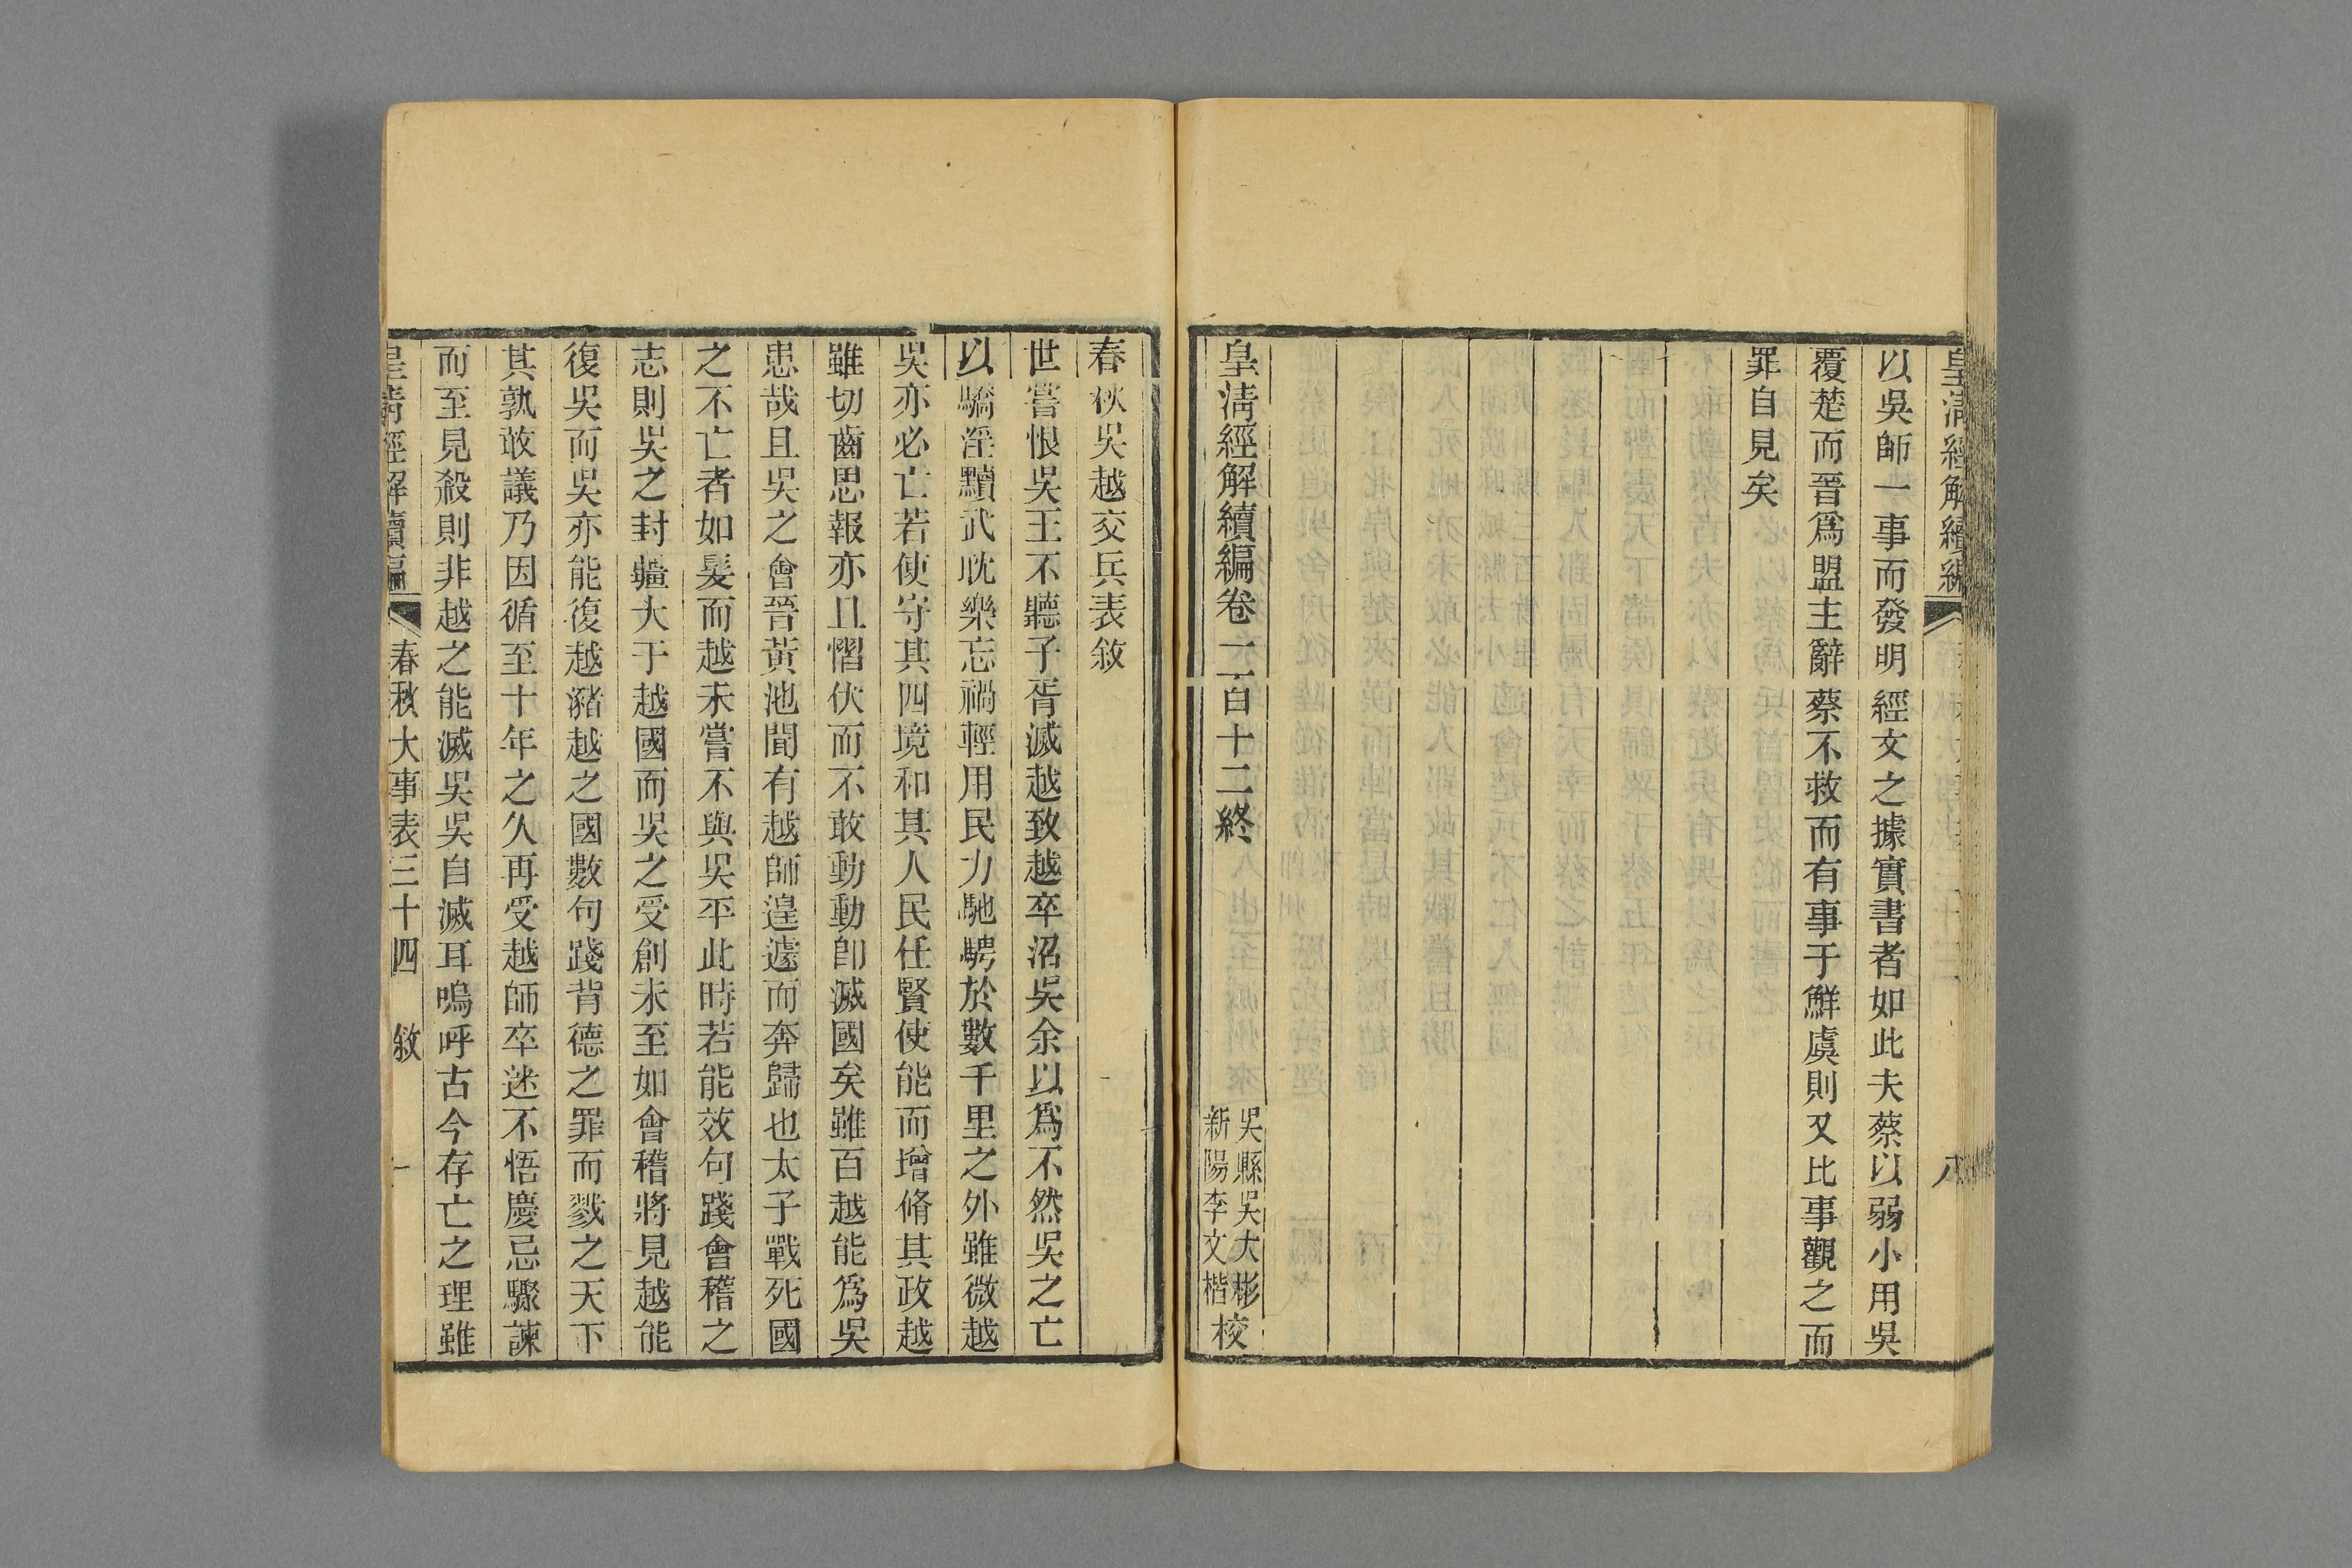 皇清經解續編
八
以吳師一事而發明經文之據實書者如此夫蔡以弱小用吳
覆楚而晉爲盟主辭蔡不救而有事于鮮虞則又比事觀之而
罪自見矣
皇清經解續編卷一百十二終
吳縣吳大彬
新陽李文楷
校
春秋吳越交兵表敘
世嘗恨吳王不聽子胥滅越致越卒沼吳余以爲不然吳之亡
以驕淫黷武耽樂忘禍輕用民力馳騁於數千里之外雖微越
吳亦必亡若使守其四境和其人民任賢使能而增脩其政越
雖切齒思報亦且慴伏而不敢動動卽滅國矣雖百越能爲吳
患哉且吳之會晉黃池聞有越師遑遽而奔歸也太子戰死國
之不亡者如髮而越未嘗不與吳平此時若能效句踐會稽之
志則吳之封疆大于越國而吳之受創未至如會稽將見越能
復吳而吳亦能復越豬越之國數句踐背德之罪而戮之天下
其孰敢議乃因循至十年之久再受越師卒迷不悟慶忌驟諫
而至見殺則非越之能滅吳吳自滅耳嗚呼古今存亡之理雖
皇清經解續編
春秋大事表三十四
敘
一